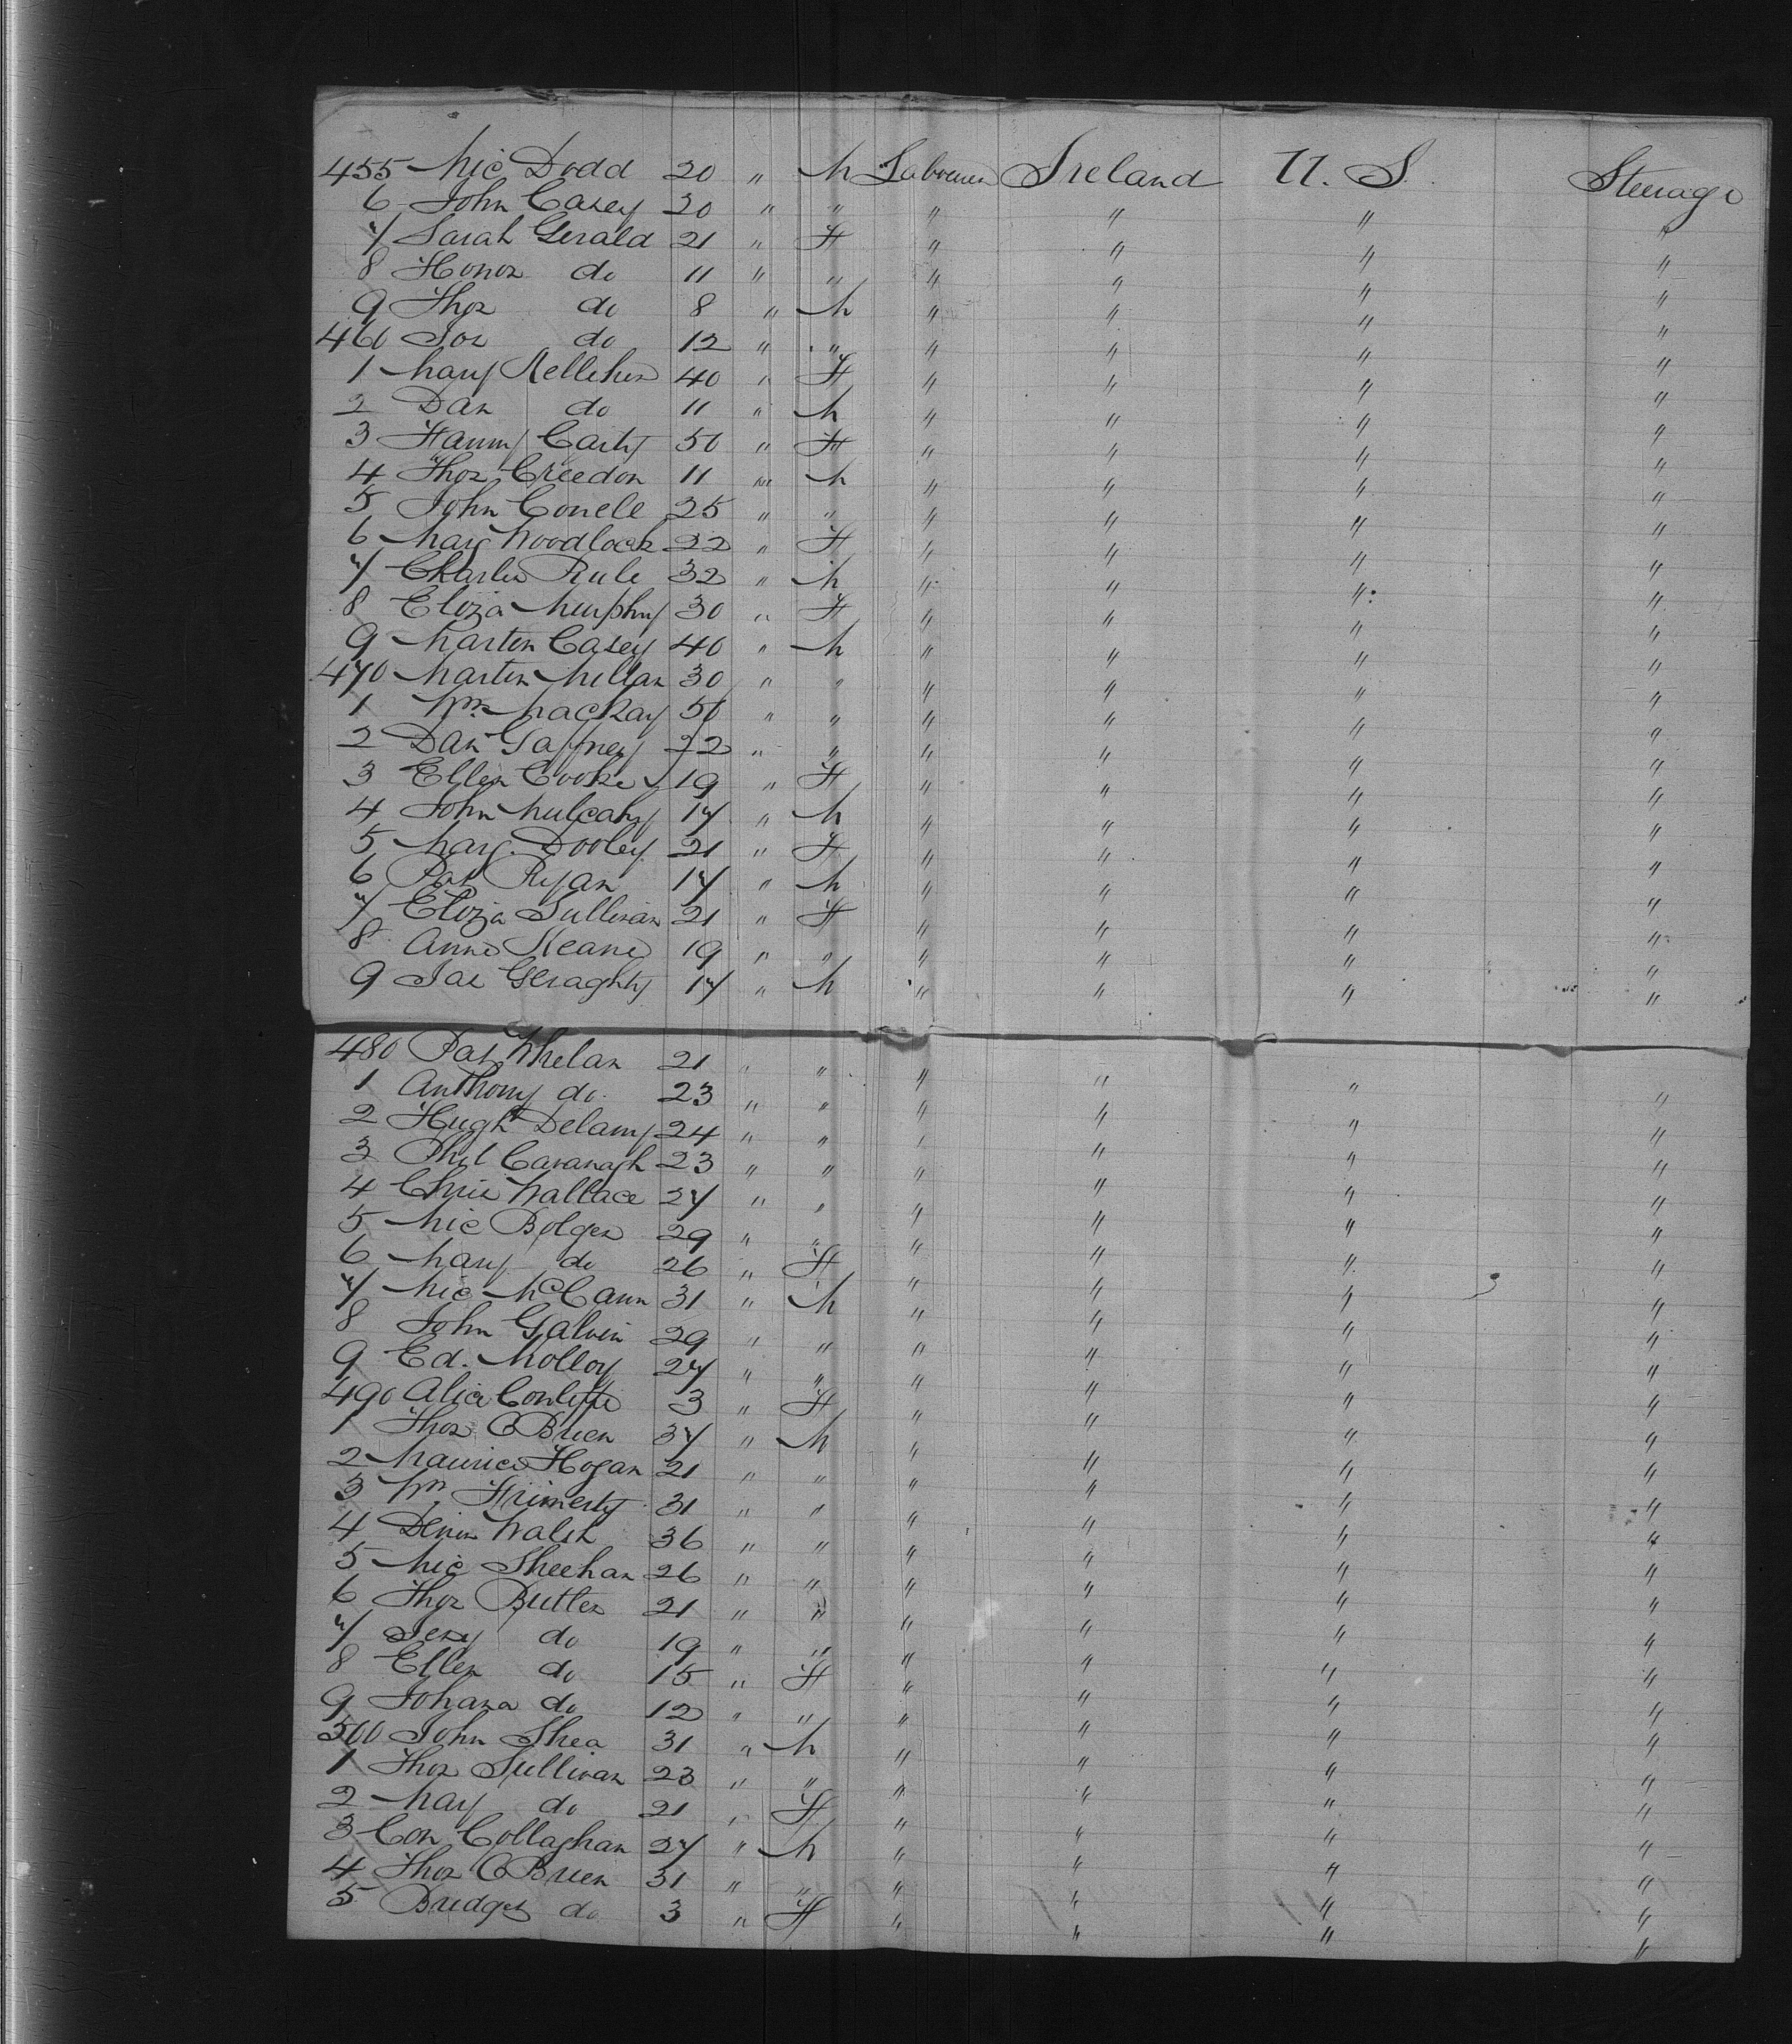 455 Mic Dodd 20 " M Labourer Ireland U. S. Steerage
6 John Casey 30 " " " " " "
7 Sarah Gerald 21 " F " " " "
8 Honor do 11 " " " " " "
9 Thos do 8 " M " " " "
460 Jos do 12 " " " " " "
1 Mary Kelleher 40 " F " " " "
2 Dan do 11 " M " " " "
3 Fanny Carty 50 " F " " " "
4 Thos Creedon 11 " M " " " "
5 John Conell 25 " " " " " "
6 Mary Woodlock 22 " F " " " "
7 Charles Rule 32 " M " " " "
8 Eliza Murphy 30 " F " " " "
9 Martin Casey 40 " M " " " "
470 Martin Millan 30 " " " " " "
1 Wm MacKay 50 " " " " " "
2 Dan Gaffney 22 " " " " " "
3 Ellen Cooke 19 " F " " " "
4 John Mulcahy 17 " M " " " "
5 Marg. Dooley 21 " F " " " "
6 Pat Ryan 17 " M " " " "
7 Eliza Sullivan 21 " F " " " "
8 Anne Keane 19 " " " " " "
9 Jas Geraghty 17 " M " " " "
480 Pat Whelan 21 " " " " " "
1 Anthony do. 23 " " " " " "
2 Hugh Delany 24 " " " " " "
3 Phil Cavanagh 23 " " " " " "
4 Chris Wallace 27 " " " " " "
5 Mic Bolger 29 " " " " " "
6 Mary do 26 " F " " " "
7 Mic McCann 31 " M " " " "
8 John Galvin 29 " " " " " "
9 Ed. Molloy 27 " " " " " "
490 Alice Conliffe 3 " F " " " "
1 Thos OBrien 37 " M " " " "
2 Maurice Hogan 21 " " " " " "
3 Wm 31 " " " " " "
4 Denis Walsh 36 " " " " " "
5 Mic Sheehan 26 " " " " " "
6 Thos Butler 21 " " " " " "
7 Jery do 19 " " " " " "
8 Ellen do 15 " F " " " "
9 Johana do 12 " " " " " "
500 John Shea 31 " M " " " "
1 Thos Sullivan 23 " " " " " "
2 Mary do 21 " F " " " "
3 Con Collaghan 27 " M " " " "
4 Thos OBrien 31 " " " " " "
5 Bridget do 3 " F " " " "